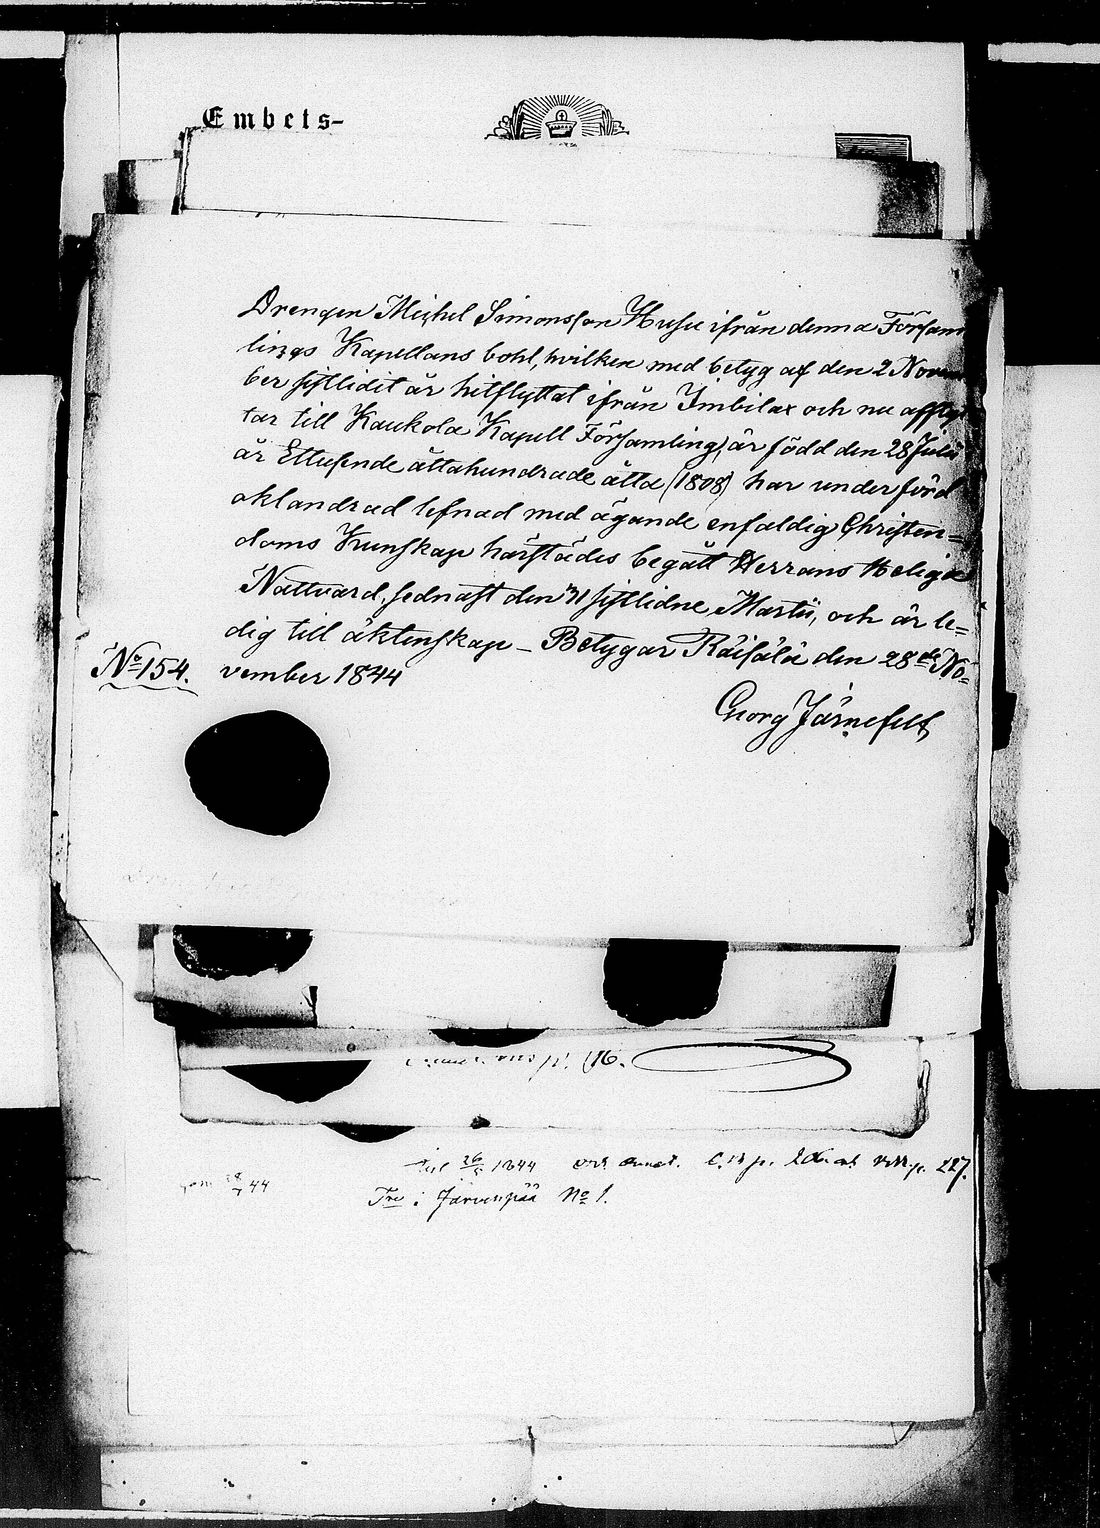 Embets-
Drengen Michel Simonsson Husu ifrån denna Försam
lings Kapellans bohl, hvilken med betyg af den 2 Novem
ber sistlidit år hitflyttat ifrån Imbilax och nu afflyt
tar till Kaukola Kapell Församling, är född den 28 Julii
år Ettusende åttahundrade åtta (1808) har under förd
oklandrad lefnad med ägande enfaldig Christen=
doms Kunskap härstädes begått Herrans Heliga
Nattvard, sednast den 31 sistlidne Martii, och är le=
dig till äktenskap – Betygar Räisälä den 28de No=
No 154. vember 1844
Georg Järnefelt
till 26/5 1844 227.
44
Tre i Järvenpää No 1.